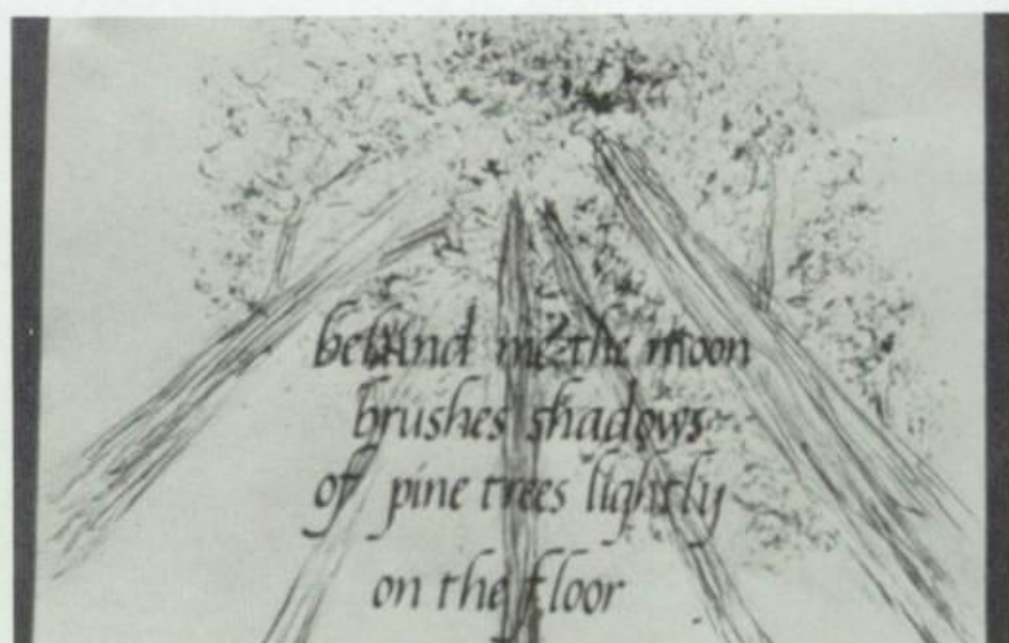 behind me the moon
brushes shadows
of pine trees lightly
on the floor